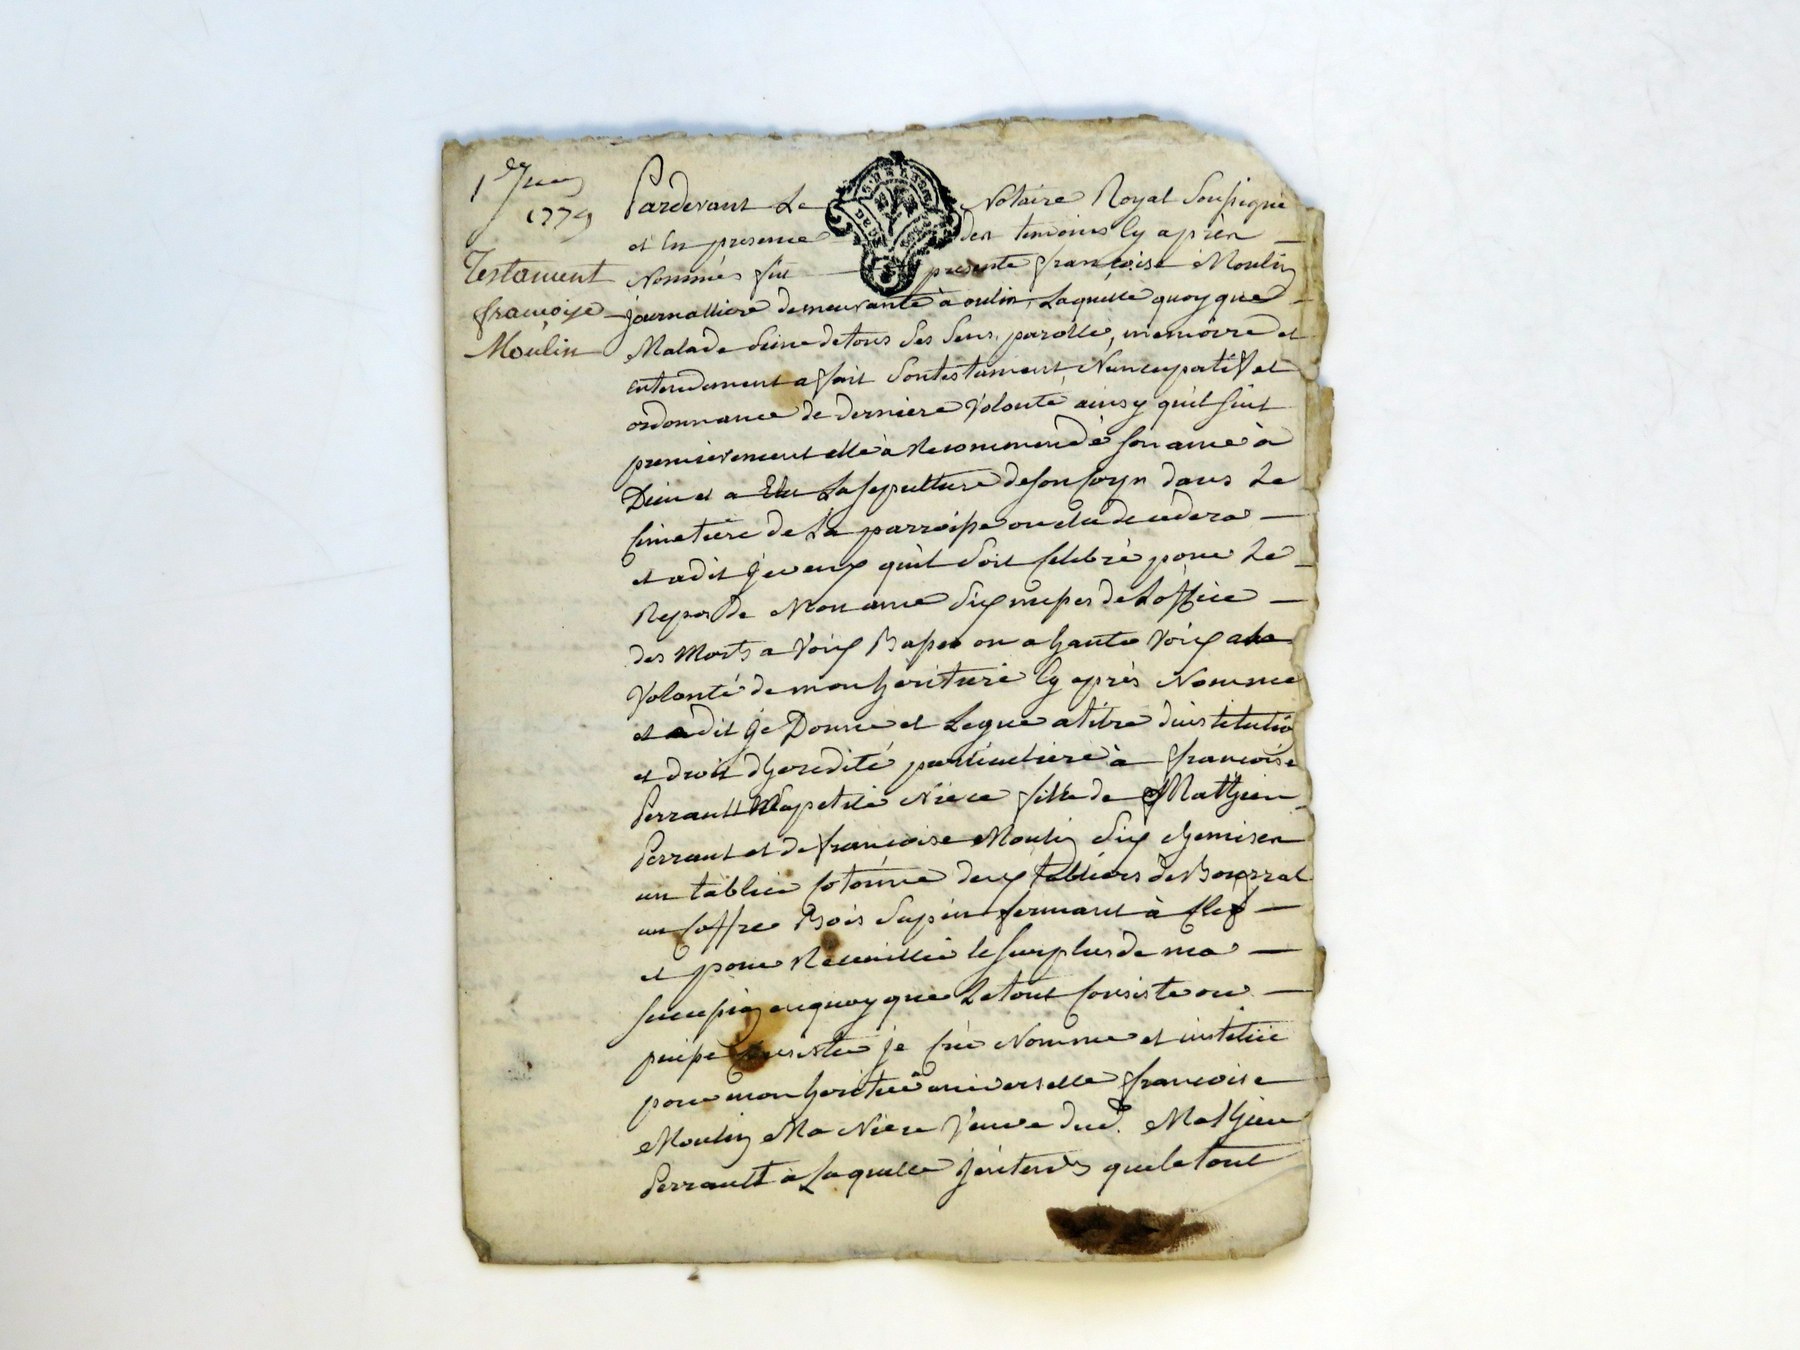 1er Juin
1779
Testament
françoise
Moulin
Pardevant Le Notaire Royal Soussigné
et En presence des temoins Cy après
Nommés fut presente françoise Moulin
journalliere demeurante à oulin, Laquelle quoy que
Malade Saine de tous Ses Sens, parolle, memoire et
entendement a fait Son testament Nuncupatif et
ordonnance de derniere Volonté ainsy quil suit
premierement elle à Recommendé son ame à
Dieu et a Elu La sepulture de son Corps dans Le
Cimetiere de La parroisse ou elle decedera
et a dit je veux quil Soit Celebré pour Le
Repos de Mon ame Six messes de L'office
des Morts a Voix Basse ou a haute Voix a la
Volonté de mon heritiere Cy après Nommé
et a dit je Donne et Legue a titre d'institutio
et droit d'heredité particuliere à françoise
Perraut Ma petite Niece fille de Mathieu
Perraut et de françoise Moulin Six chemises
un tablier Cotonne deux tabliers de Bourrat
un Coffre Bois Sapin fermant à Clef
et pour Recueillir le surplus de ma
succession en quoy que Le tout Consiste ou
puisse Consister je Crée Nomme et institue
pour mon heritiere universelle françoise
Moulin Ma Niece Veuve dud. Mathieu
Perrault a Laquelle j'entends que le tout